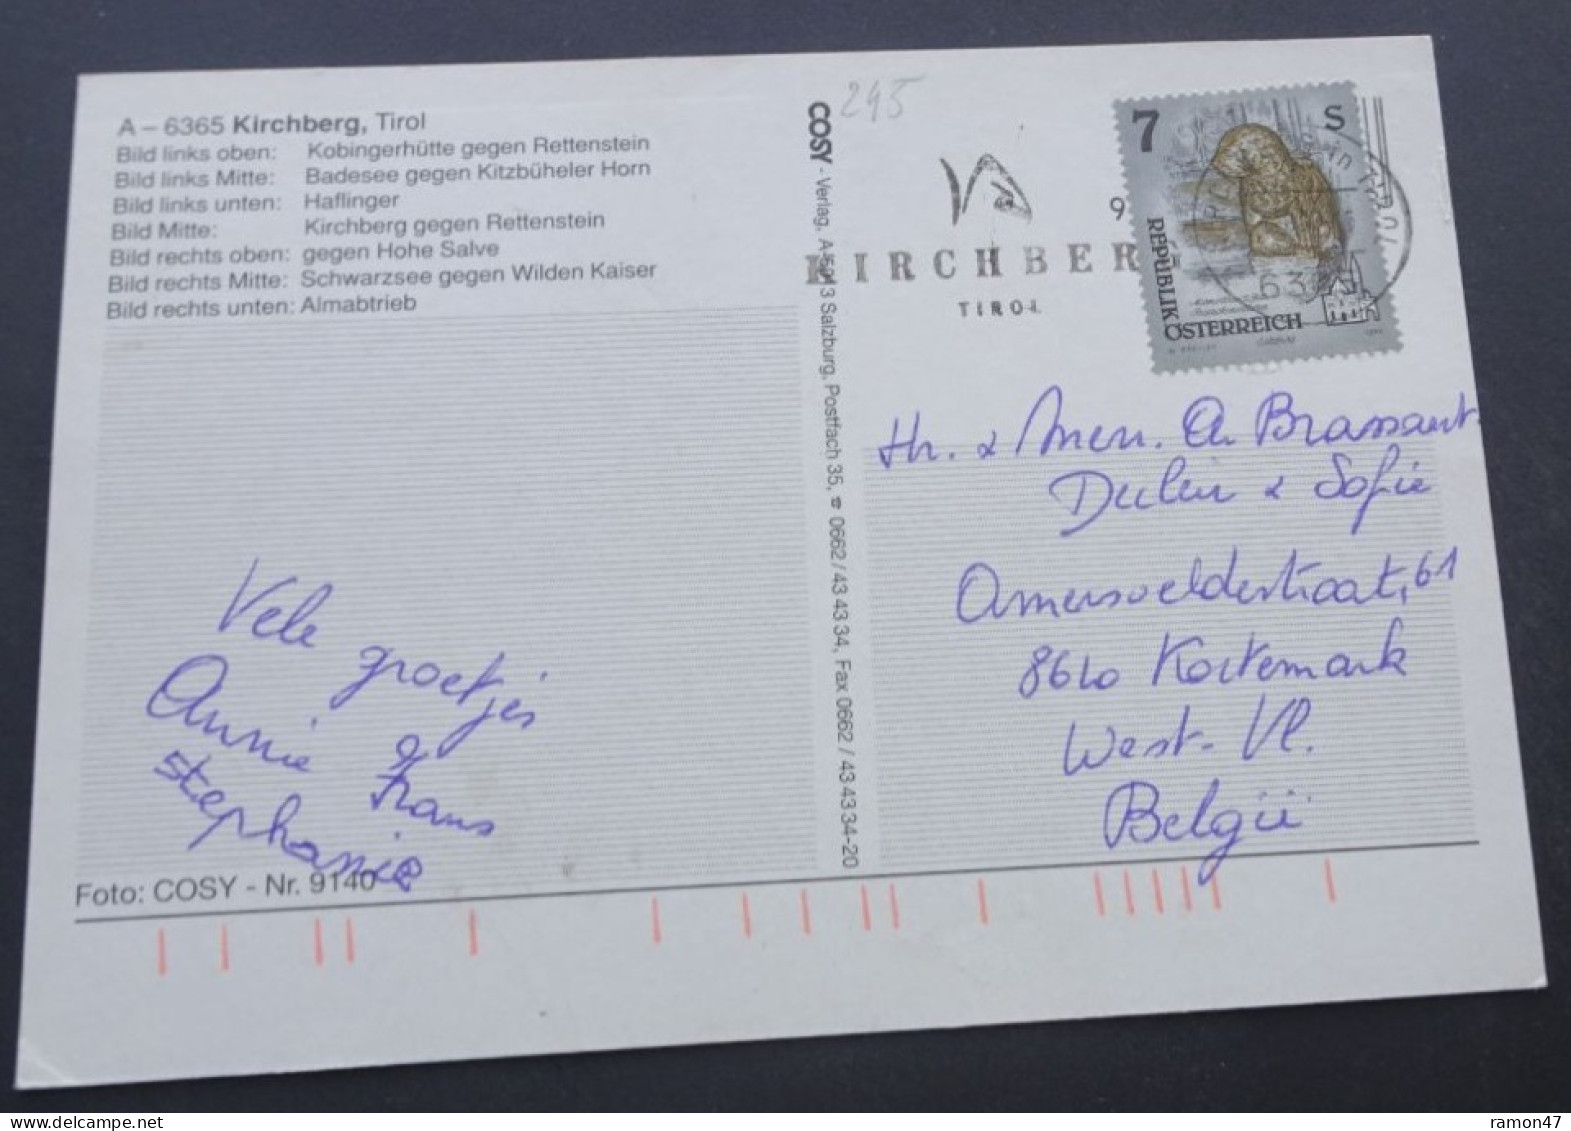 A – 6365 Kirchberg, Tirol
Bild links oben: Kobingerhütte gegen Rettenstein
Bild links Mitte: Badesee gegen Kitzbüheler Horn
Bild links unten: Haflinger
Bild Mitte: Kirchberg gegen Rettenstein
Bild rechts oben: gegen Hohe Salve
Bild rechts Mitte: Schwarzsee gegen Wilden Kaiser
Bild rechts unten: Almabtrieb
Vele groetjes
Annie & Frans
Stephanie
Foto: COSY - Nr. 9140
COSY - Verlag, A-5013 Salzburg, Postfach 35, ☎ 0662/43 43 34, Fax 0662/43 43 34-20
245
KIRCHBER
TIROL
9
7 S
REPUBLIK
ÖSTERREICH
Hr. & Mevr. A. Brassaut.
& Sofie
Amersveldestraat, 61
8610 Kortemark
West-Vl.
België
ramon47